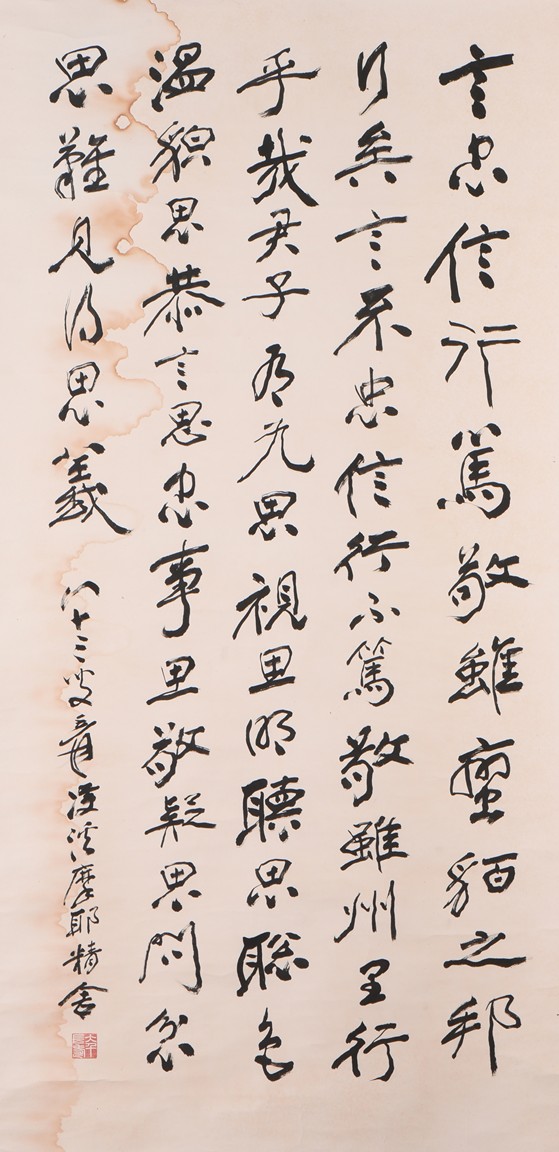 言忠信行篤敬雖蠻貊之邦
行矣言不忠信行不篤敬雖州里行
乎哉君子有九思視思明聽思聰色
溫貌思恭言思忠事思敬疑思問忿
思難見得思義
八十三叟爰双溪摩耶精舍